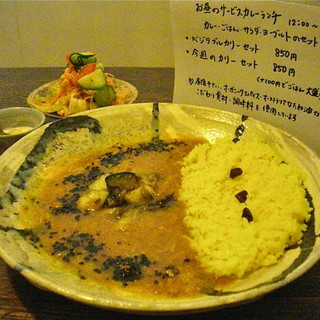 お昼のサービスカレーランチ 12:00〜
カレー・ごはん・サラダ・ヨーグルトのセット
・ベジタブルカリーセット 850円
・今週のカリーセット 850円
(+100円でごはん大盛
こだわり素材・調味料を使用しています